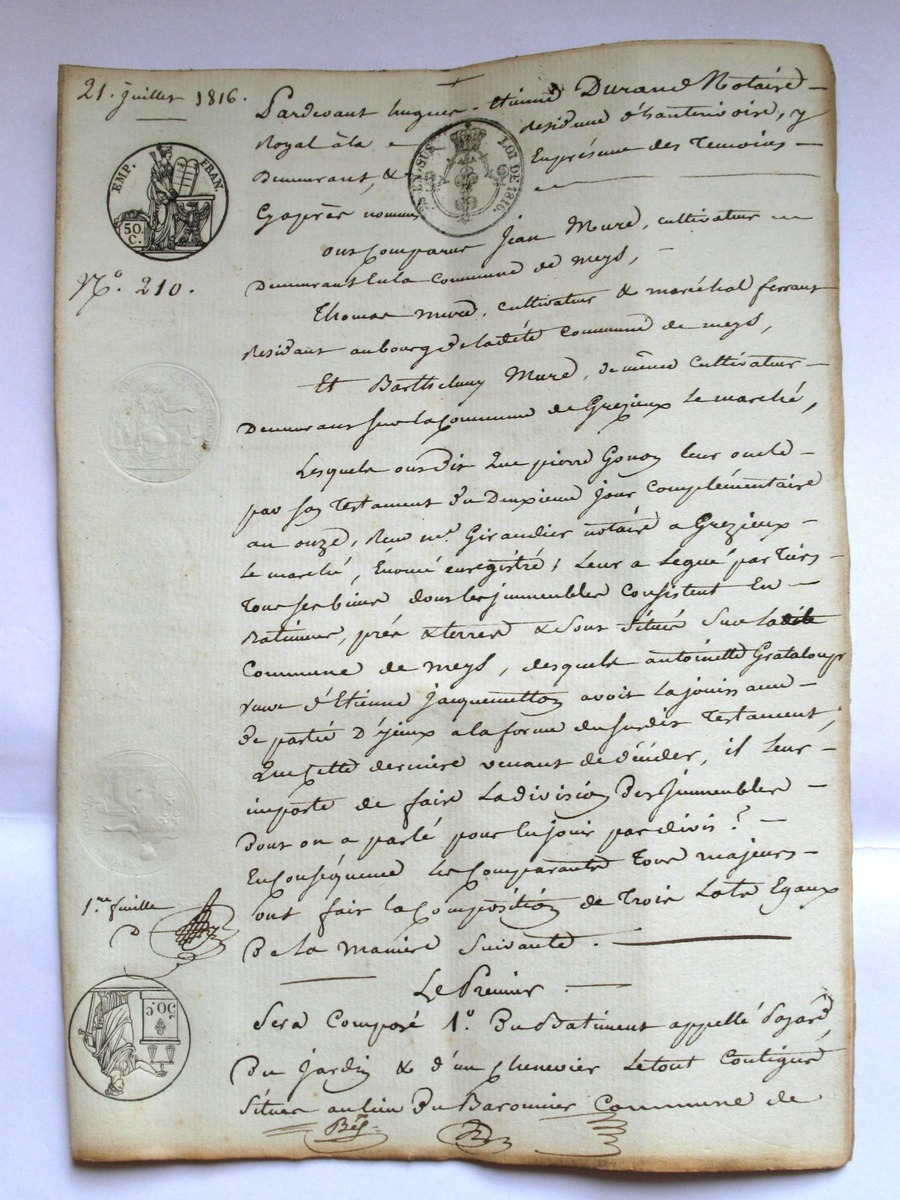 21. juillet 1816.
Pardevant hugues-Etienne Durand Notaire
Royal à la residence d'hauterivoire, y
Demeurant, & Enpresence des Temoins
Cyaprès nommés
ont Comparus Jean Mure, cultivateur
Demeurant En la Commune de meys,
Thomas mure, cultivateur & maréchal ferrant
Residant au bourg de ladite Commune de meys,
Et Barthelemy Mure, de même Cultivateur
Demeurant sur la Commune de Grezieux Le marché,
Lesquels ont dit Que pierre Gonon leur oncle
par son Testament du Deuxieme jour Complémentaire
an onze, Reçu me. Giraudier notaire a Grezieux
Le marché, Enregistré; Leur a Legué par Tiers
Tous ses biens dont les immeubles Consistent En
Batimens, prés & terres & sont situés sur ladite
Commune de meys, desquels antoinette Grataloup
veuve d'Etienne Jacquemetton avoit La jouissance
De partie D'yceux a la forme du susdit Testament,
Que cette derniere venant de deceder, il leur
importe de faire La division Des Immeubles
Dont on a parlé pour En jouir par divis?
En Conséquence Les Comparants Tous majeurs
ont fait la Composition de Trois Lots Egaux
De la Maniere Suivante.
Le Premier
Sera Composé 1o. Du Batiment appellé
Du Jardin & d'un Chenevier Le tout Contigus
Situés au lieu Du Baronnier Commune de
EMP. FRAN.
50.
C.
LOI DE 1816.
No. 210.
1.re feuille
50.C.